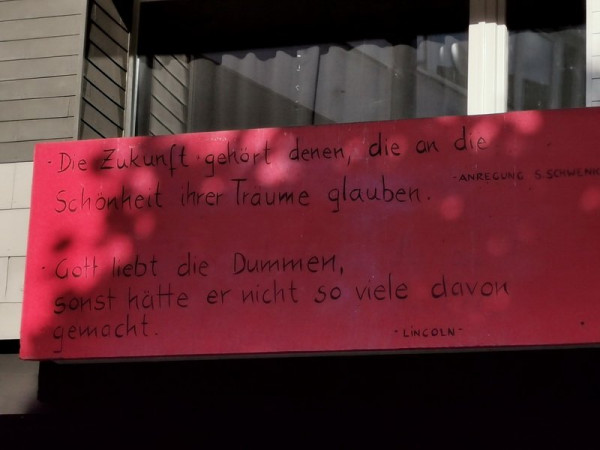 · Die Zukunft · gehört denen, die an die
Schönheit ihrer Träume glauben.
- ANREGUNG S. SCHWENK
· Gott liebt die Dummen,
sonst hätte er nicht so viele davon
gemacht.
- LINCOLN -